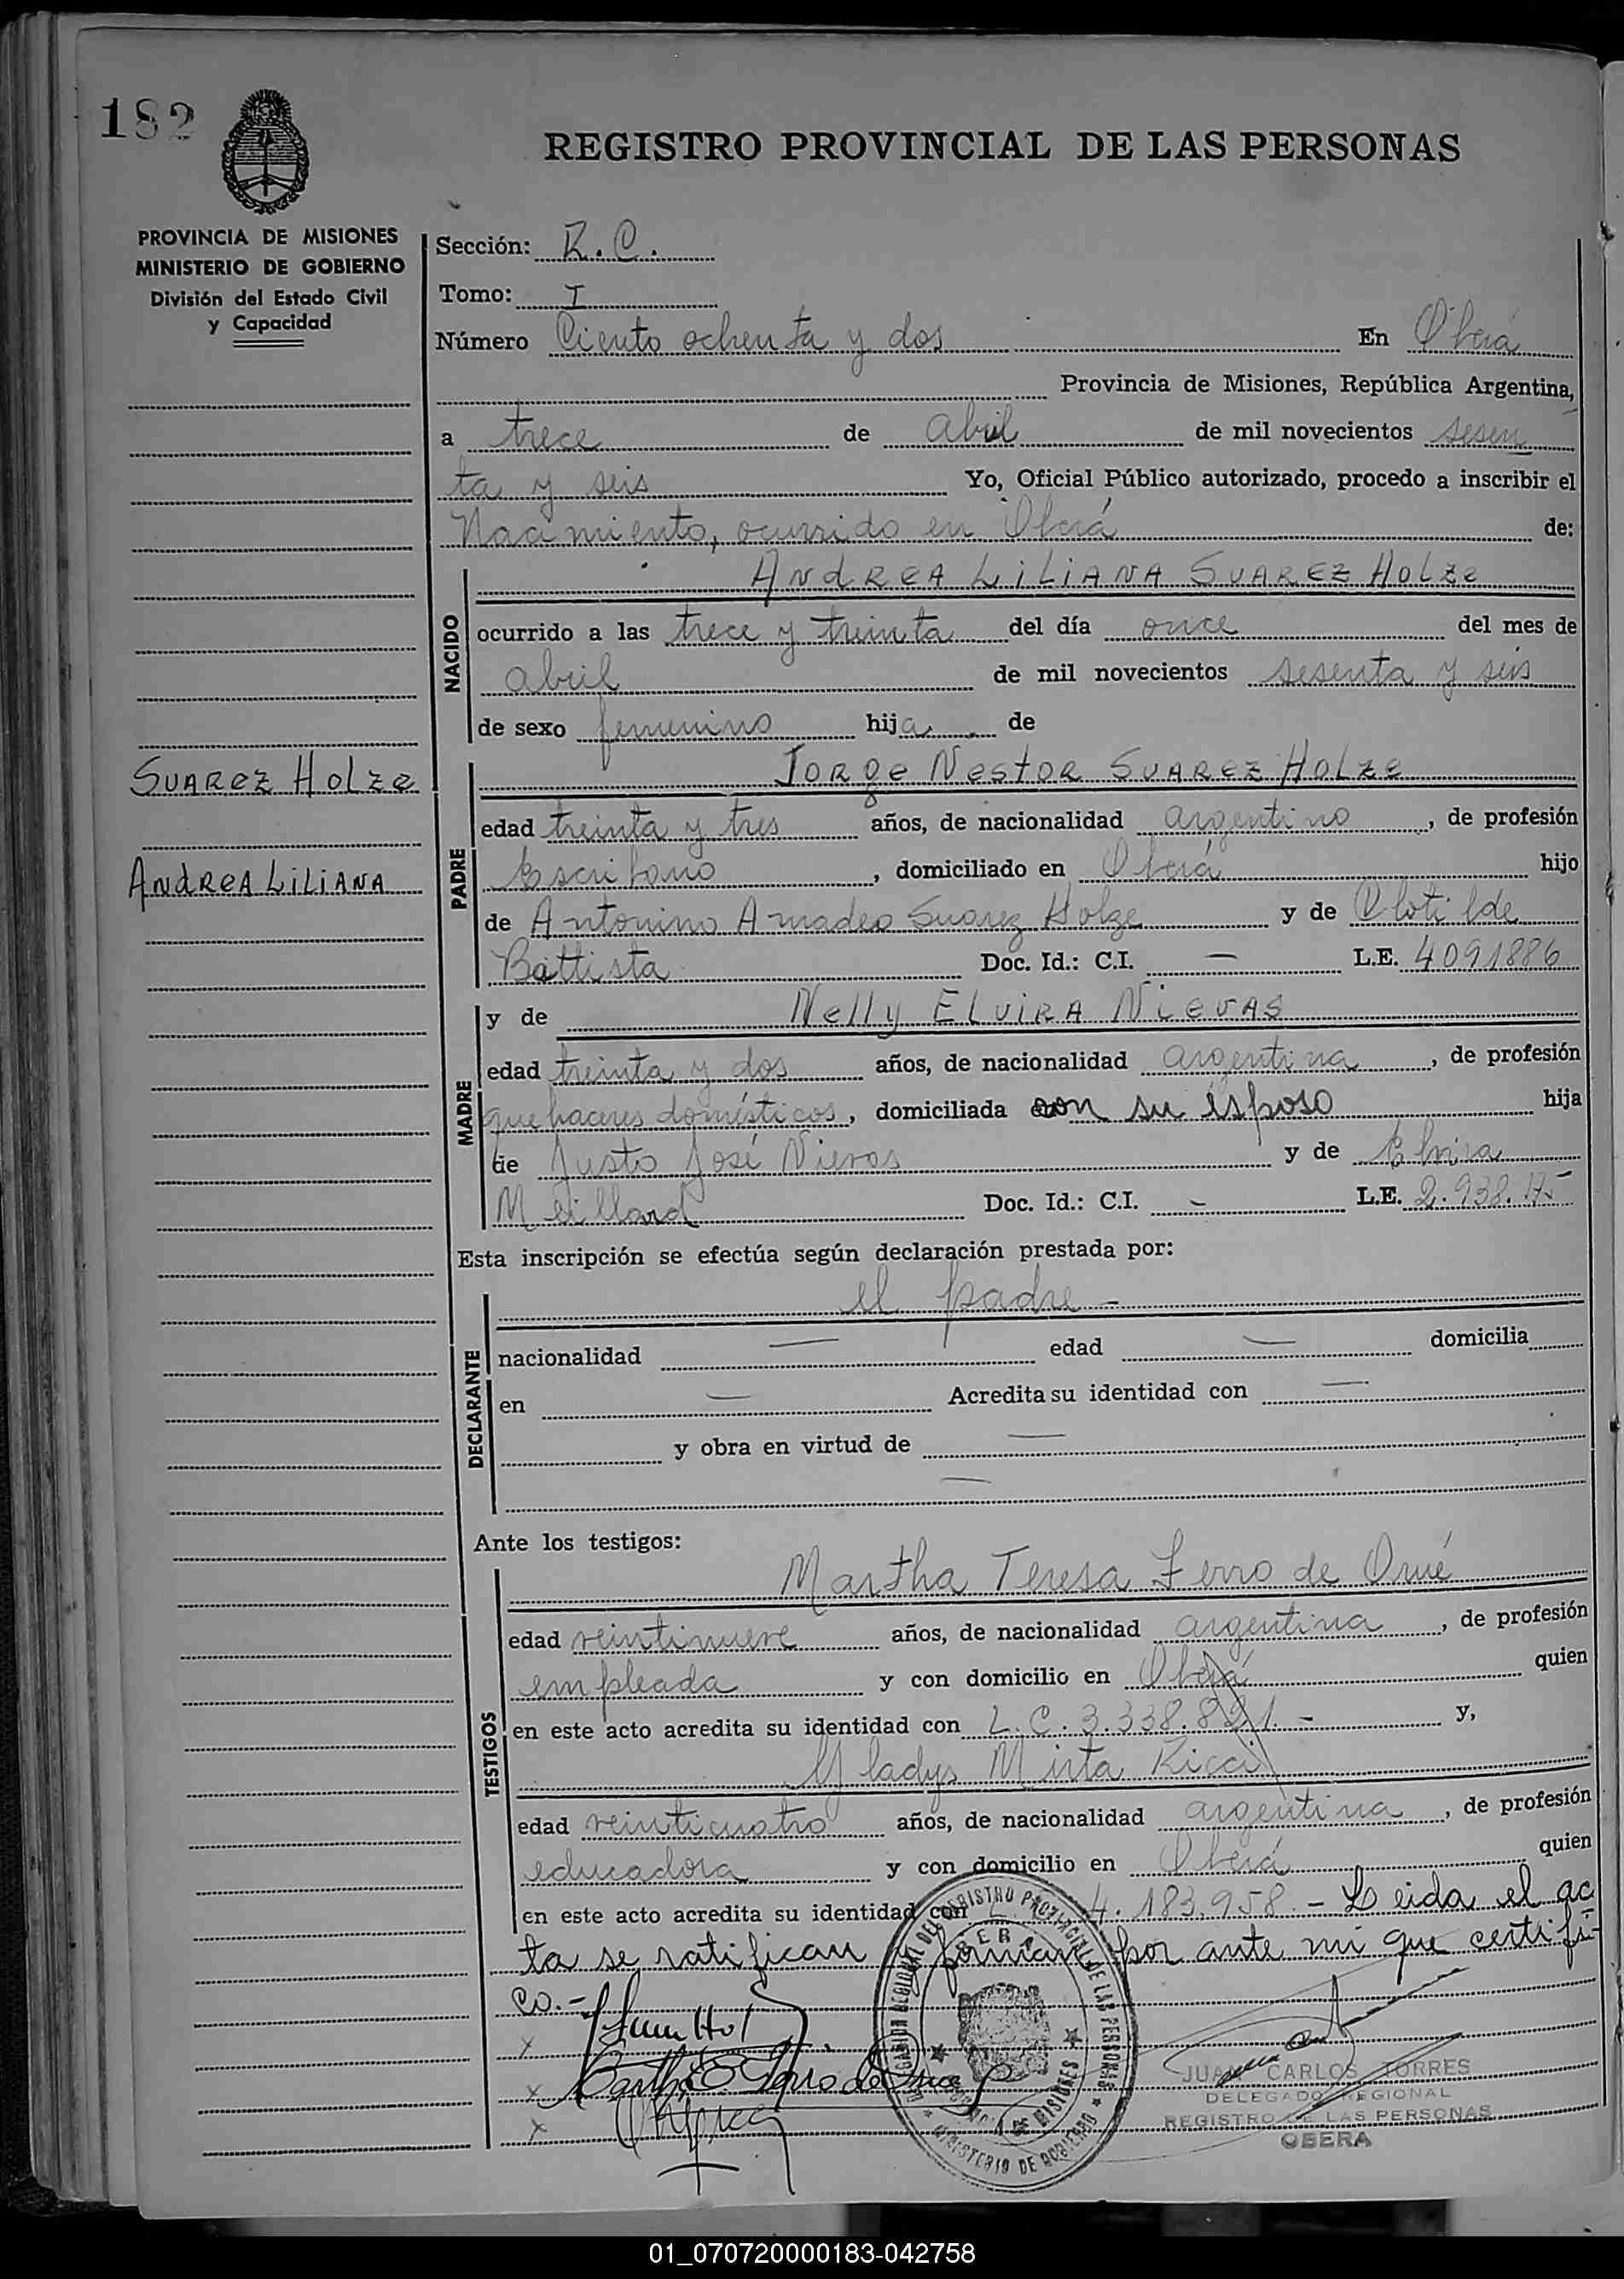 182
REGISTRO PROVINCIAL DE LAS PERSONAS
PROVINCIA DE MISIONES
MINISTERIO DE GOBIERNO
División del Estado Civil
y Capacidad
Sección: R.C.
Tomo: I
Número Ciento ochenta y dos En Oberá
Provincia de Misiones, República Argentina,
a trece de abril de mil novecientos sesen
ta y seis Yo, Oficial Público autorizado, procedo a inscribir el
Nacimiento, ocurrido en Oberá de:
NACIDO
ANdREA LiLiANA SUAREZ HOLZe
ocurrido a las trece y treinta del día once del mes de
abril de mil novecientos sesenta y seis
de sexo femenino hija de
SUAREZ HOLZe
ANdREA LiLiANA
PADRE
JORge NestOR SUAREZ HOLZe
edad treinta y tres años, de nacionalidad argentino, de profesión
Escribano, domiciliado en Oberá hijo
de Antonino Amadeo Suarez Holze y de Clotilde
Battista Doc. Id.: C.I. — L.E. 4091886
MADRE
y de Nelly ELviRA NieVAS
edad treinta y dos años, de nacionalidad argentina, de profesión
quehaceres domésticos, domiciliada con su esposo hija
de Justo José Nievas y de Elvira
Meillard Doc. Id.: C.I. - L.E. 2.938.
Esta inscripción se efectúa según declaración prestada por:
DECLARANTE
el padre -
nacionalidad — edad — domicilia
en — Acredita su identidad con —
y obra en virtud de —
—
Ante los testigos:
TESTIGOS
Martha Teresa Ferro de
edad veintinueve años, de nacionalidad argentina, de profesión
empleada y con domicilio en Oberá quien
en este acto acredita su identidad con L.C. 3.338.821.- y,
Gladys Mirta Ricci
edad veinticuatro años, de nacionalidad argentina, de profesión
educadora y con domicilio en Oberá quien
en este acto acredita su identidad con 4.183.958.- Leida el ac
ta se ratifican firman por ante mi que certifi-
co.-
JUAN CARLOS TORRES
DELEGADO REGIONAL
REGISTRO DE LAS PERSONAS
OBERA
DELEGACION REGIONAL DEL REGISTRO PROVINCIAL DE LAS PERSONAS
OBERA
MISIONES
MINISTERIO DE GOBIERNO
01_070720000183-042758